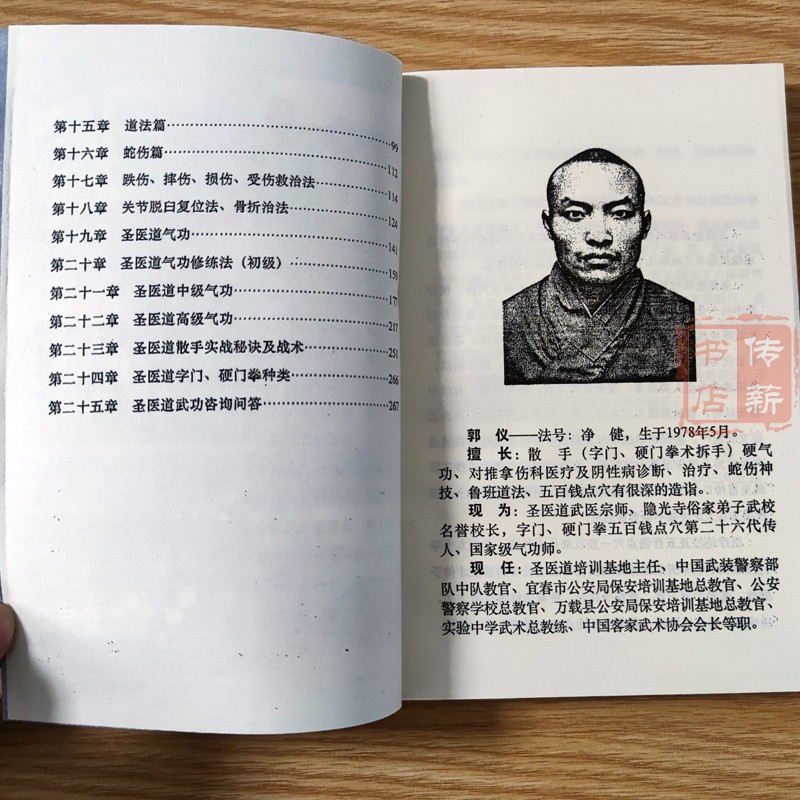 第十五章 道法篇……………………………99
第十六章 蛇伤篇……………………………112
第十七章 跌伤、摔伤、损伤、受伤救治法……114
第十八章 关节脱臼复位法、骨折治法…………124
第十九章 圣医道气功…………………………141
第二十章 圣医道气功修练法（初级）…………159
第二十一章 圣医道中级气功…………………177
第二十二章 圣医道高级气功…………………217
第二十三章 圣医道散手实战秘诀及战术………251
第二十四章 圣医道字门、硬门拳种类…………266
第二十五章 圣医道武功咨询问答………………267
郭 仪——法号：净 健，生于1978年5月。
擅 长：散 手（字门、硬门拳术拆手）硬气
功、对推拿伤科医疗及阴性病诊断、治疗、蛇伤神
技、鲁班道法、五百钱点穴有很深的造诣。
现 为：圣医道武医宗师、隐光寺俗家弟子武校
名誉校长，字门、硬门拳五百钱点穴第二十六代传
人、国家级气功师。
现 任：圣医道培训基地主任、中国武装警察部
队中队教官、宜春市公安局保安培训基地总教官、公安
警察学校总教官、万载县公安局保安培训基地总教官、
实验中学武术总教练、中国客家武术协会会长等职。
传薪
书店